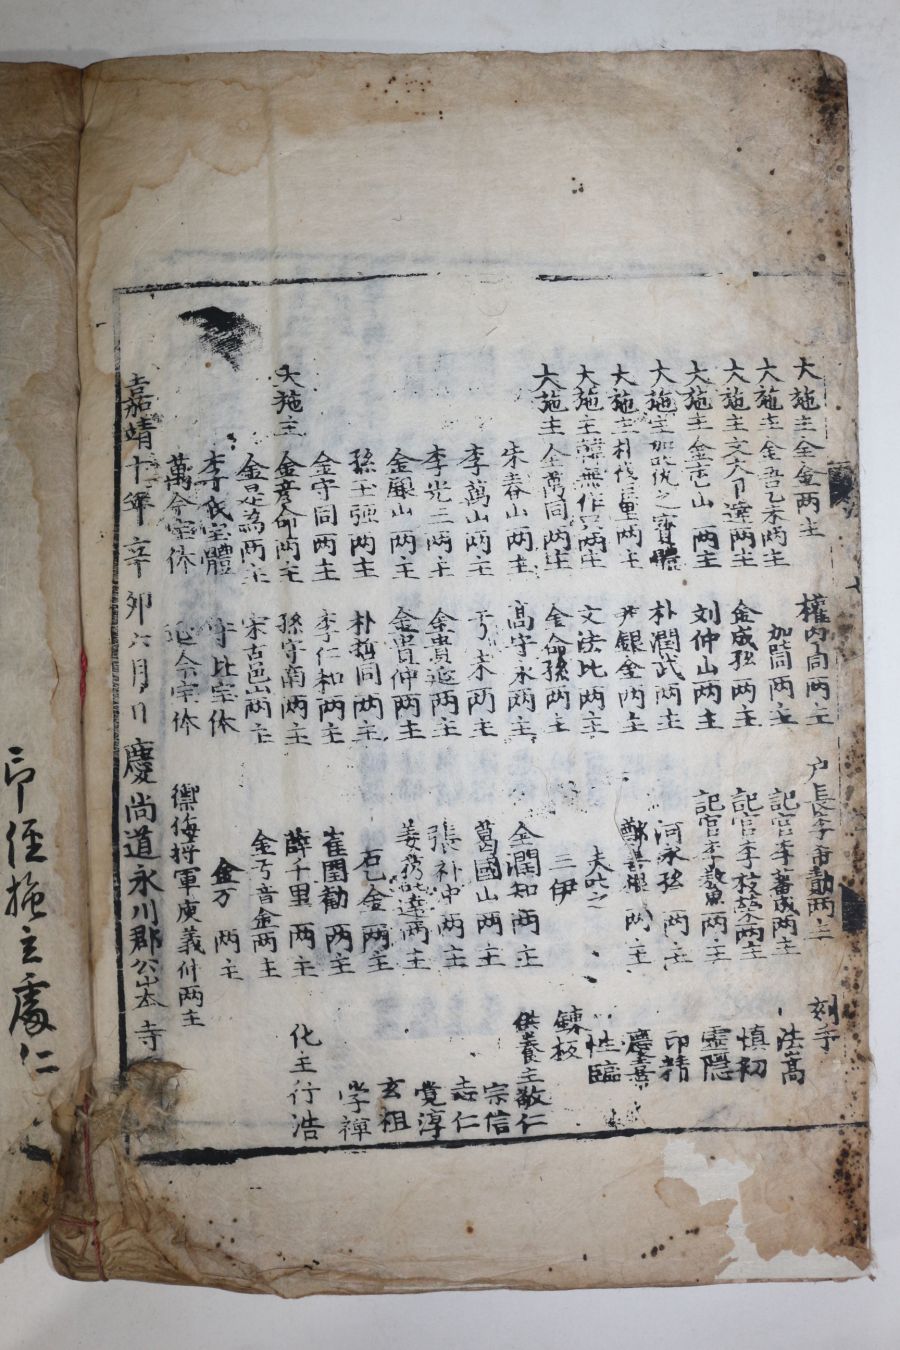 大施主全金两主 權內同两主 戶長李希勳两主 刻手
大施主金吾乙未两主 加㖯同两主 記官李蕃成两主 法嵩
大施主文大月達两主 金成孫两主 記官李枝榮两主 慎初
大施主金志山两主 刘仲山两主 記官李敦男两主 靈隠
大施主加 仇之寳體 朴潤武两主 河永孫两主 印精
大施主朴代 童两主 尹銀金两主 鄭 根两主 慶熹
大施主韓無作只两主 文法比两主 夫叱之 性臨
大施主全萬同两主 金命孫两主 三伊 鍊板
朱春山两主 高守永两主 全潤知两主 供養主敬仁
李萬山两主 亐未两主 葛國山两主 宗信
李光三两主 金貴 两主 張補中两主 志仁
金 山两主 金貴仲两主 姜 達两主 覚淳
孫玉强两主 朴哲同两主 石乙金两主 玄祖
金守同两主 李仁和两主 崔閏勧两主 学禅
大施主 金彦命两主 孫守萳两主 薛千里两主 化主行浩
金 為两主 宋古邑山两主 金亐音金两主
李 衣宝體 守比宝体 金万两主
萬今宝体 今宝体 禦侮将軍庾義什两主
嘉靖十年辛卯六月日慶尚道永川郡公山本寺
印經施主處仁